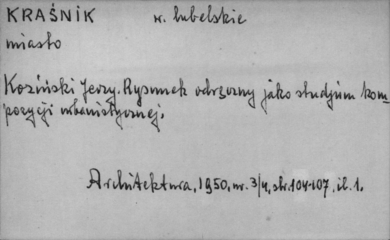 KRAŚNIK w. lubelskie
miasto
Koziński Jerzy. Rysunek odręczny jako studjum kom
pozycji urbanistycznej.
Architektura, 1950, nr. 3/4, str. 104-107, il. 1.